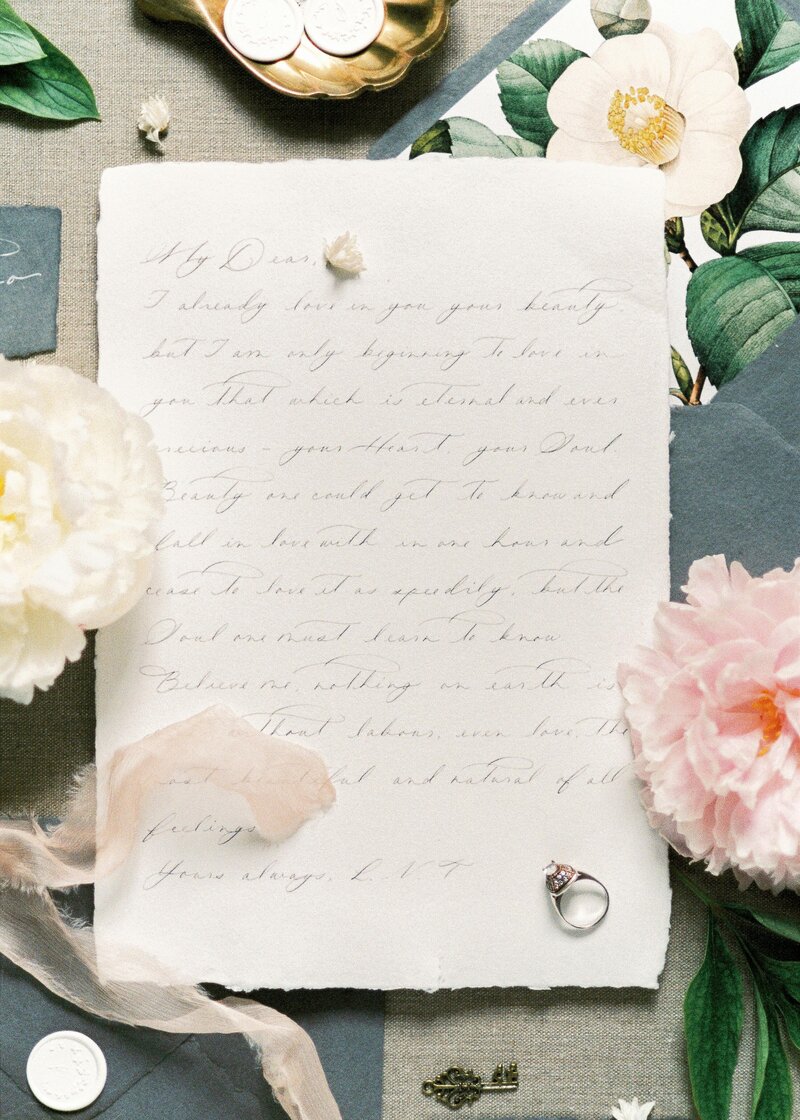 My Dear,
I already love in you your beauty,
but I am only beginning to love in
you that which is eternal and ever
precious – your Heart, your Soul.
Beauty one could get to know and
fall in love with in one hour and
cease to love it as speedily, but the
Soul one must learn to know.
Believe me, nothing on earth is
without labour, even love, the
most beautiful and natural of all
feelings
Yours always, L. N. T